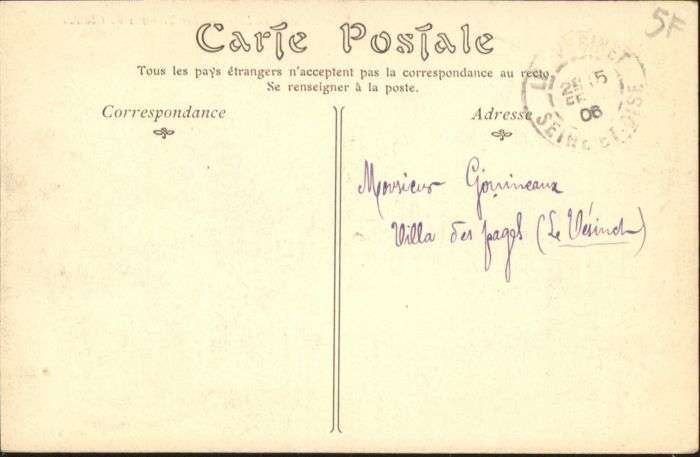 Carte Postale
5F
Tous les pays étrangers n'acceptent pas la correspondance au recto.
Se renseigner à la poste.
Correspondance
Adresse
SEINE ET OISE
06
Monsieur
Villa des pages (Le Vésinet)